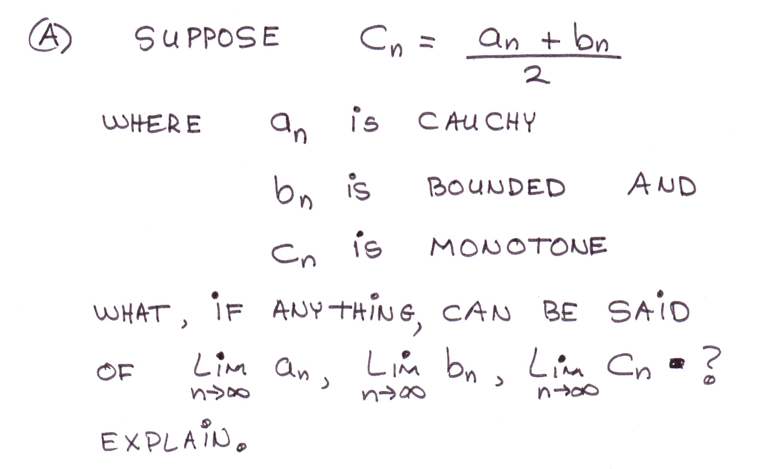 (A) SUPPOSE Cn = an + bn / 2
WHERE an is CAUCHY
bn is BOUNDED AND
Cn is MONOTONE
WHAT, iF ANYTHiNG, CAN BE SAiD
OF Lim n→∞ an, Lim n→∞ bn, Lim n→∞ Cn ?
EXPLAiN.